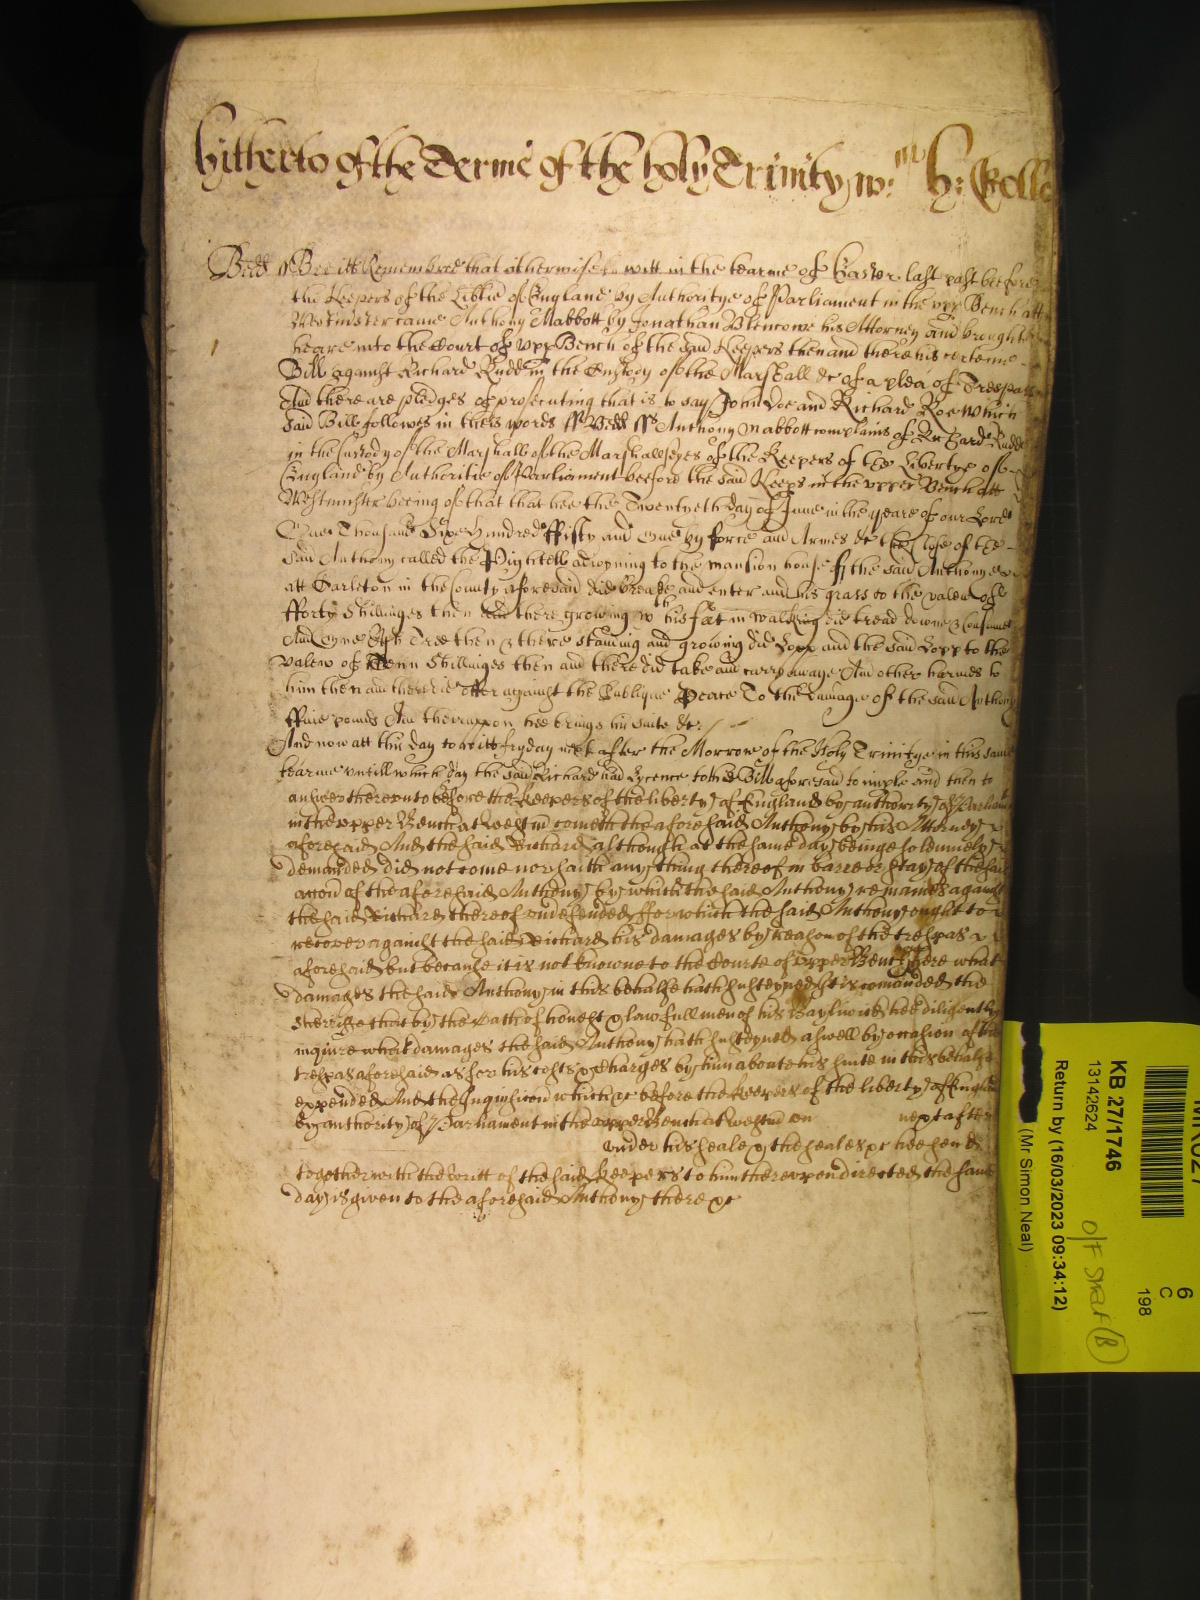 hitherto of the Terme of the holy Trinity w:
Bedd ss Bee itt Remembred that otherwise to witt in the tearme of Easter last past beefore
the Keepers of the Libtie of England by Authoritye of Parliament in the vpp Bench att
Westminster came Anthony Mabbott by Jonathan Blencowe his Attorney and brought
heare into the Court of vpp Bench of the said Keepers then and there his certeine
Bill against Richard Rudd in the Custody of the Marshall &c of a plea of Trespass
And there are pledges of prosecuting that is to say John Doe and Richard Roe Which
said Bill followes in theis words ss Bedd ss Anthony Mabbott complains of Richard Rudd
in the Custody of the Marshall of the Marshallseyes of the Keepers of the Libertye of
England by Authoritie of Parliament beefore the said Keeps in the vpper Bench att
Westminster beeing of that that hee the Twenteth day of June in the yeare of our Lord
One Thousand Sixe Hundred ffifty and One by force and Armes &c the Close of the
said Anthony called the Pightell adioyning to the mansion house of the said Anthonyes
att Carleton in the County aforesaid did breake and enter and his grass to the valew of
fforty Shillinges then there growing wth his feet in walking did tread downe & consume
And Oyne Ash Tree then & there standing and growing did Lopp and the said Lopp to the
valew of Tenn Shillinges then and there did take and carry awaye And other harmes to
him then and there did offer against the Publique Peace To the damage of the said Anthony
ffive pounds And therevppon hee brings his suite &c:
And now att this day to witt fryday next after the Morrow of the Holy Trinitye in this same
tearme vntill which day the said Richard had Lycence to the Bill aforesaid to imple and then to
answer therevnto before the Keepers of the liberty of England by authority of Parliamt
in the vpper Bench at Westmr cometh the aforesaid Anthony by his Attorney
aforesaid And the said Richard although at the same day beinge solemnely
demanded did not come nor saith any thing thereof in barre or stay of the said
accon of the aforesaid Anthony by which the said Anthony remaines against
the said Richard thereof vndefended ffor which the said Anthony ought to
recover against the said Richard his damages by reason of the trespas
aforesaid but because it is not knowne to the Courte of vpper Bench here what
damages the said Anthony in this behalfe hath susteyned It is comanded the
Sheriffe that by the oath of honest & lawfull men of his Bayliwick hee diligently
inquire what damages the said Anthony hath susteyned aswell by occasion of the
trespas aforesaid as for his costs & charges by him about his suite in this behalfe
expended And the Inquisicon which &c before the Keepers of the liberty of England
by authority of Parliament in the vpper Bench at Westmr on next after
vnder his seale & the seales &c hee send
together with the writt of the said Keepers to him therevpon directed the same
day is given to the aforesaid Anthony there &c
KB 27/1746
13142624
Return by (16/03/2023 09:34:12)
(Mr Simon Neal)
6
C
198